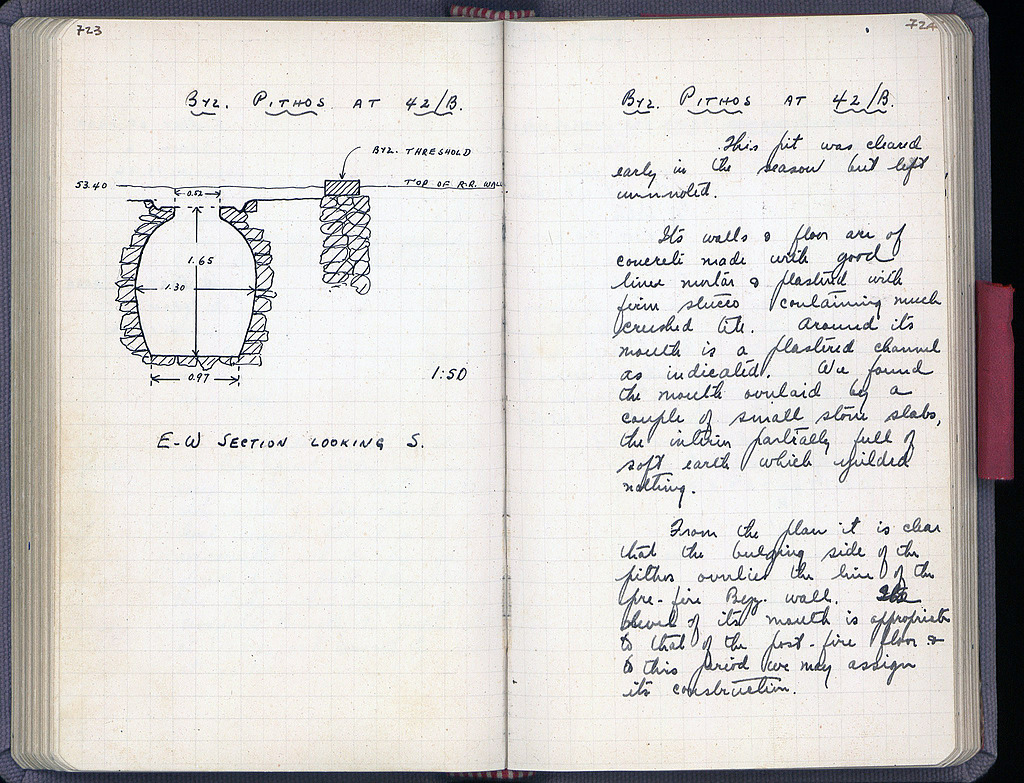 723
Byz. PITHOS AT 42/B.
BYZ. THRESHOLD
53.40
TOP OF R.R. WALL
0.52
1.65
1.30
0.97
1:50
E-W SECTION LOOKING S.
724
Byz. PITHOS AT 42/B.
This pit was cleared
early in the season but left
unnoted.
Its walls & floor are of
concrete made with good
lime mortar & plastered with
firm stucco containing much
crushed tile. Around its
mouth is a plastered channel
as indicated. We found
the mouth overlaid by a
couple of small stone slabs,
the interior partially full of
soft earth which yielded
nothing.
From the plan it is clear
that the bulging side of the
pithos overlies the line of the
pre-fire Byz. wall. The
level of its mouth is appropriate
to that of the post-fire floor &
to this period we may assign
its construction.